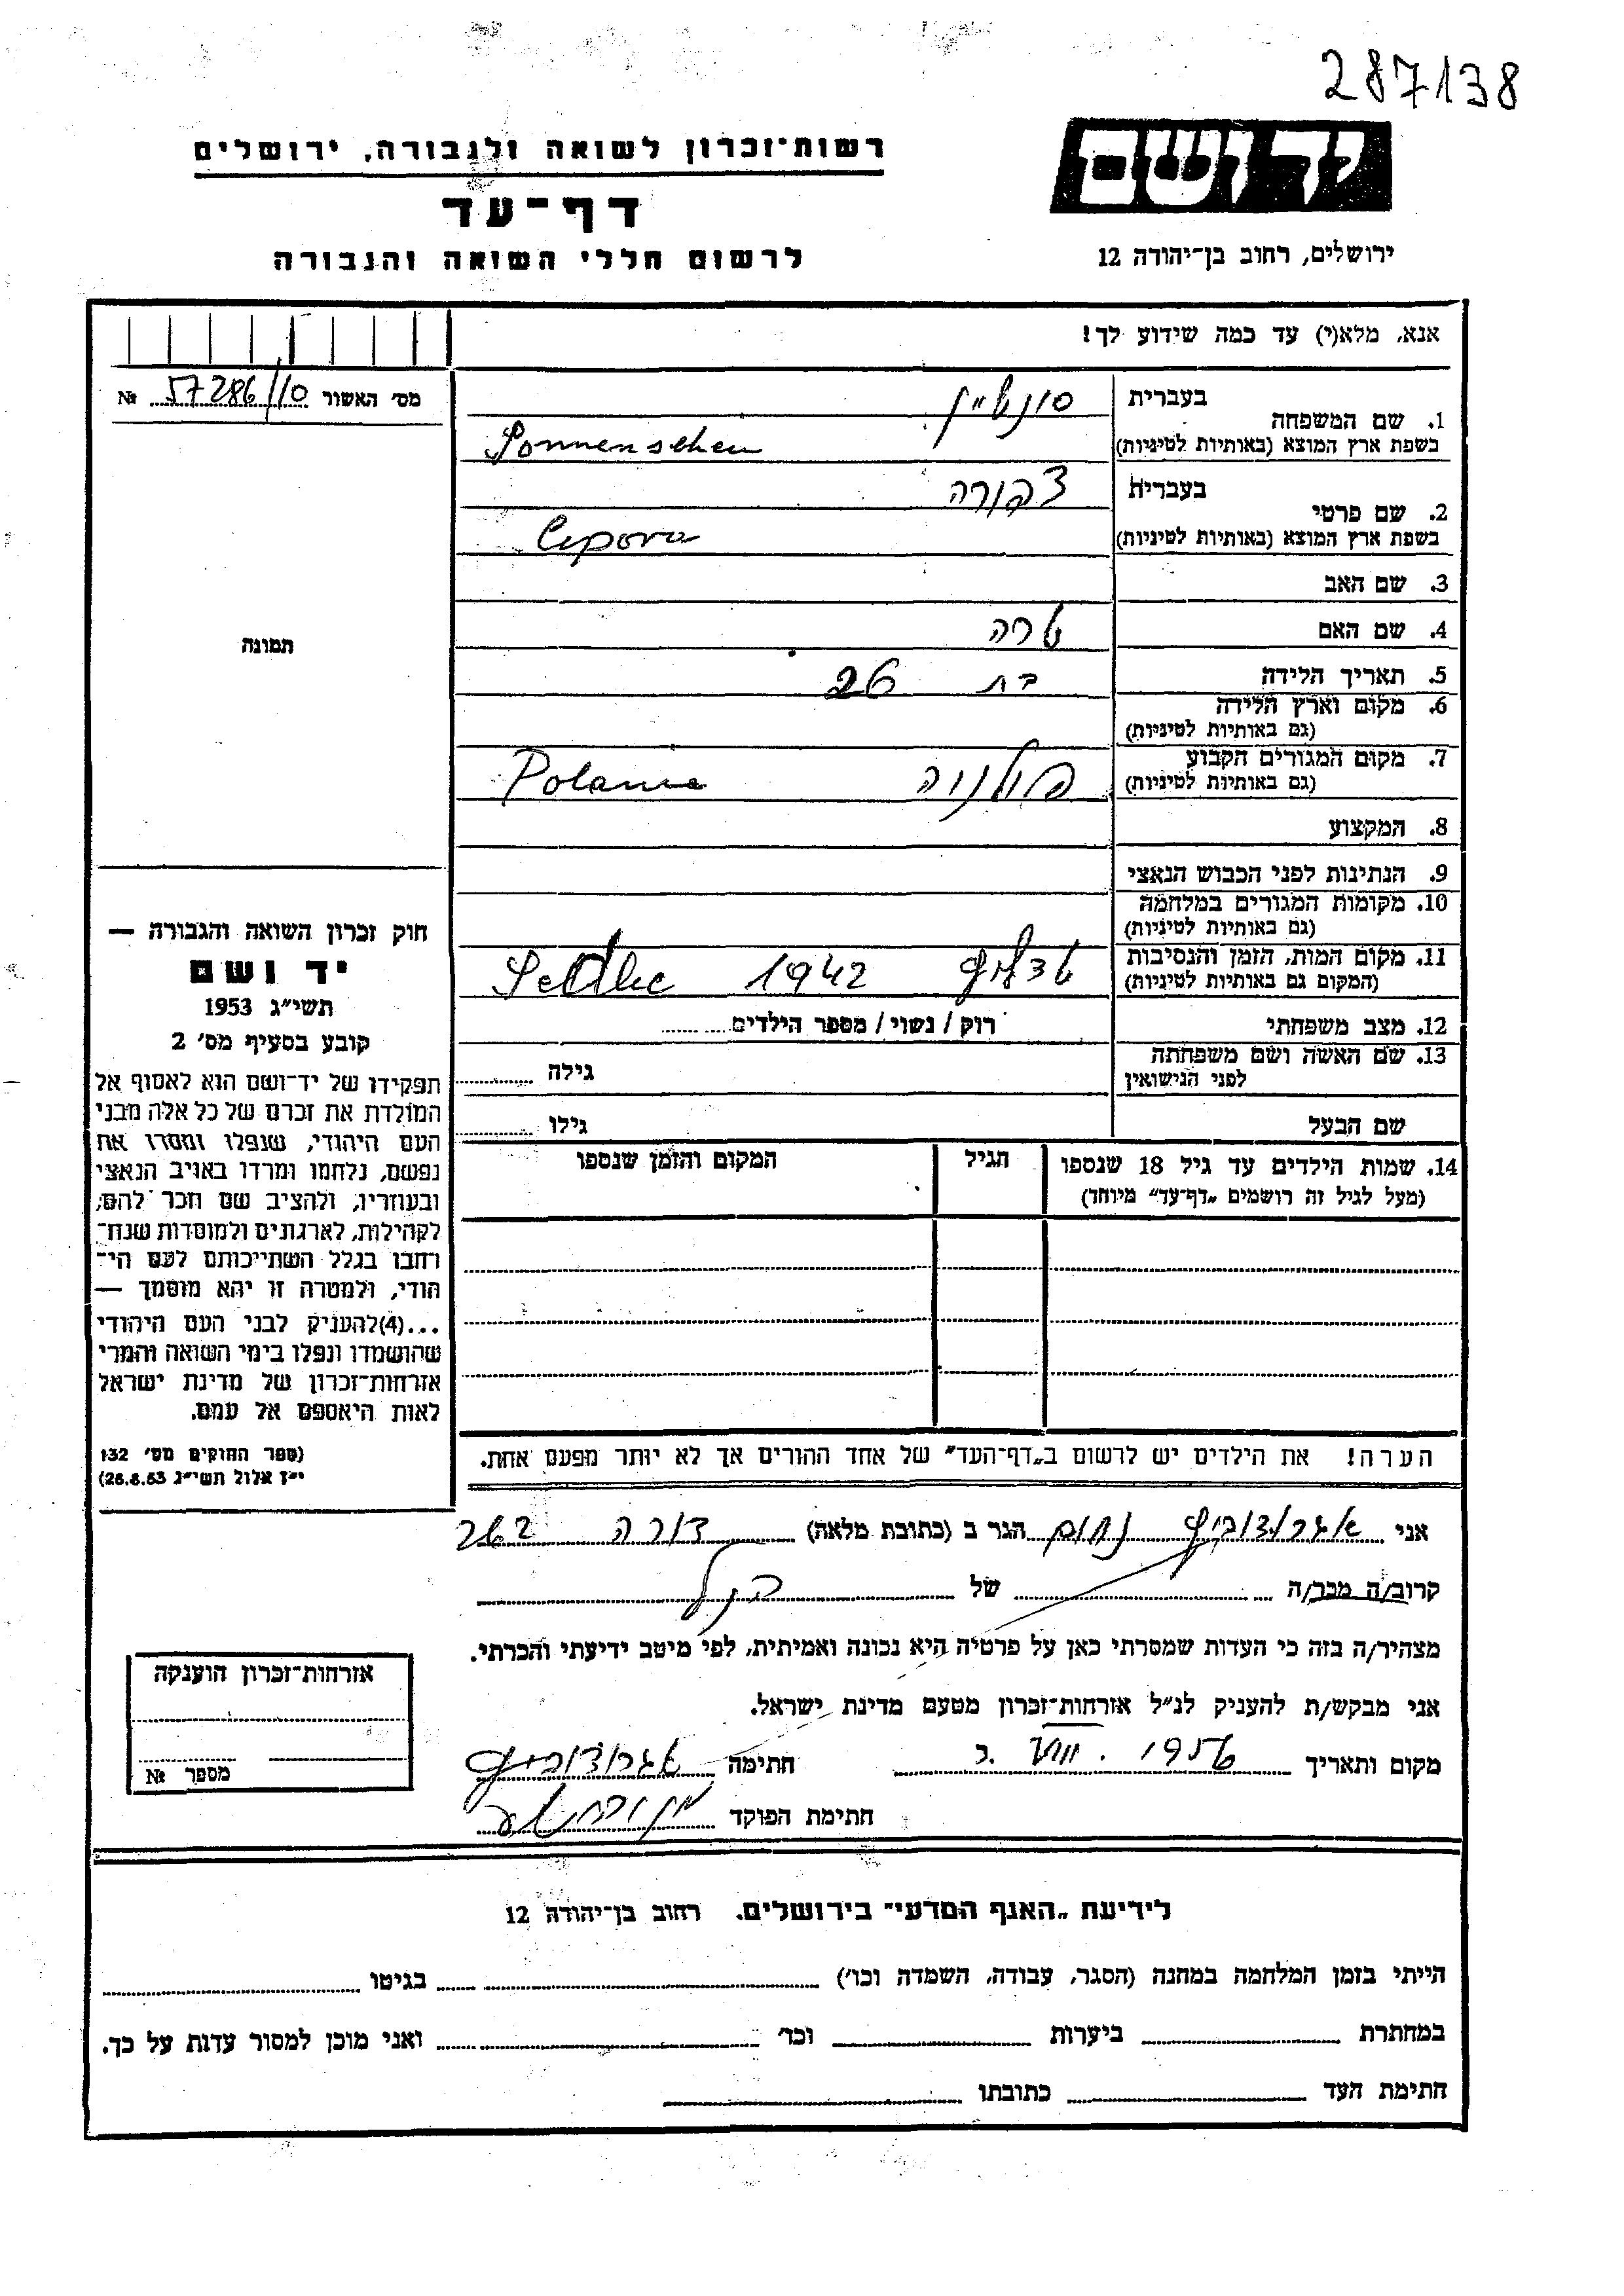 287138
יד ושם
ירושלים, רחוב בן־יהודה 12
רשות־זכרון לשואה ולגבורה, ירושלים
דף־עד
לרשום חללי השואה והגבורה
אנא, מלא(י) עד כמה שידוע לך!
מס׳ האשור 57286/10 №
תמונה
1. שם המשפחה
בעברית
בשפת ארץ המוצא (באותיות לטיניות) Sonnenschen
2. שם פרטי
בעברית צפורה
בשפת ארץ המוצא (באותיות לטיניות) Cepora
3. שם האב
4. שם האם שרה
5. תאריך הלידה בת 26
6. מקום וארץ הלידה
(גם באותיות לטיניות)
7. מקום המגורים הקבוע פולניה
(גם באותיות לטיניות)
8. המקצוע
9. הנתינות לפני הכבוש הנאצי
10. מקומות המגורים במלחמה
(גם באותיות לטיניות)
11. מקום המות, הזמן והנסיבות 1942
(המקום גם באותיות לטיניות)
12. מצב משפחתי רוק / נשוי / מספר הילדים
13. שם האשה ושם משפחתה
לפני הנישואין גילה
שם הבעל גילו
14. שמות הילדים עד גיל 18 שנספו
(מעל לגיל זה רושמים „דף־עד״ מיוחד)
הגיל
המקום והזמן שנספו
חוק זכרון השואה והגבורה —
יד ושם
תשי״ג 1953
קובע בסעיף מס׳ 2
תפקידו של יד־ושם הוא לאסוף אל
המולדת את זכרם של כל אלה מבני
העם היהודי, שנפלו ומסרו את
נפשם, נלחמו ומרדו באויב הנאצי
ובעוזריו, ולהציב שם וזכר להם,
לקהילות, לארגונים ולמוסדות שנח־
רבו בגלל השתייכותם לעם הי־
הודי, ולמטרה זו יהא מוסמך —
...(4)להעניק לבני העם היהודי
שהושמדו ונפלו בימי השואה והמרי
אזרחות־זכרון של מדינת ישראל
לאות היאספם אל עמם.
(ספר החוקים מס׳ 132
י״ז אלול תשי״ג 28.8.53)
הערה! את הילדים יש לרשום ב„דף־העד״ של אחד ההורים אך לא יותר מפעם אחת.
אני נחום הגר ב (כתובת מלאה)
קרוב/ה מכר/ה של
מצהיר/ה בזה כי העדות שמסרתי כאן על פרטיה היא נכונה ואמיתית, לפי מיטב ידיעתי והכרתי.
אני מבקש/ת להעניק לנ״ל אזרחות־זכרון מטעם מדינת ישראל.
מקום ותאריך חתימה
חתימת הפוקד
אזרחות־זכרון הוענקה
מספר №
לידיעת „האגף המדעי״ בירושלים. רחוב בן־יהודה 12
הייתי בזמן המלחמה במחנה (הסגר, עבודה, השמדה וכו׳) בגיטו
במחתרת ביערות וכו׳ ואני מוכן למסור עדות על כך.
חתימת העד כתובתו